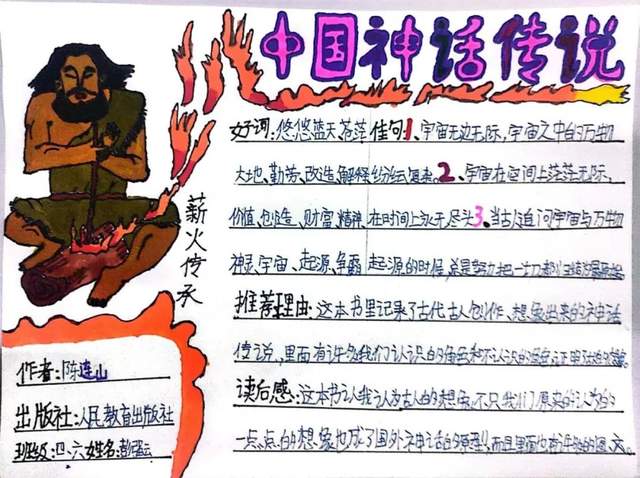 中国神话传说
好词：悠悠蓝天、苍莽 佳句1、宇宙无边无际，宇宙之中的万物
大地、勤劳、改造、解释 纷纭复杂。2、宇宙在空间上茫茫无际，
价值、创造、财富、精神、在时间上永无尽头3、当古人追问宇宙与万物
神灵、宇宙、起源、争霸 起源的时候，总是努力把一切都
推荐理由：这本书里记录了古代古人创作、想象出来的神话
传说，里面有许多我们认识的角色和不认识的角色
读后感：这本书让我认为古人的想象，不只我们原来的认为的
一点点的想象也成了国外神话的原型，而且里面也有许多的
薪火传承
作者：陈连山
出版社：人民教育出版社
班级：四、六 姓名：